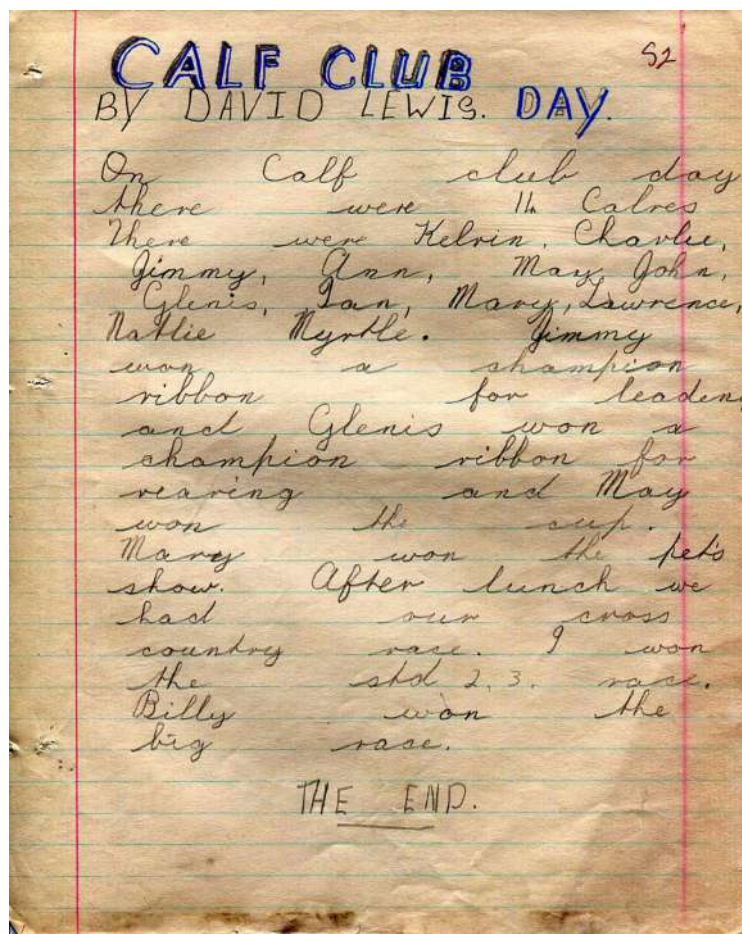 CALF CLUB S2
BY DAVID LEWIS. DAY.
On Calf club day
there were 14 Calves
There were Kelvin, Charlie,
Jimmy, Ann, May, John,
Glenis, Ian, Mary, Lawrence,
Natlie Myrtle. Jimmy
won a champion
ribbon for leading
and Glenis won a
champion ribbon for
rearing and May
won the cup.
Mary won the pets
show. After lunch we
had our cross
country race. I won
the std 2. 3. race.
Billy won the
big race.
THE END.